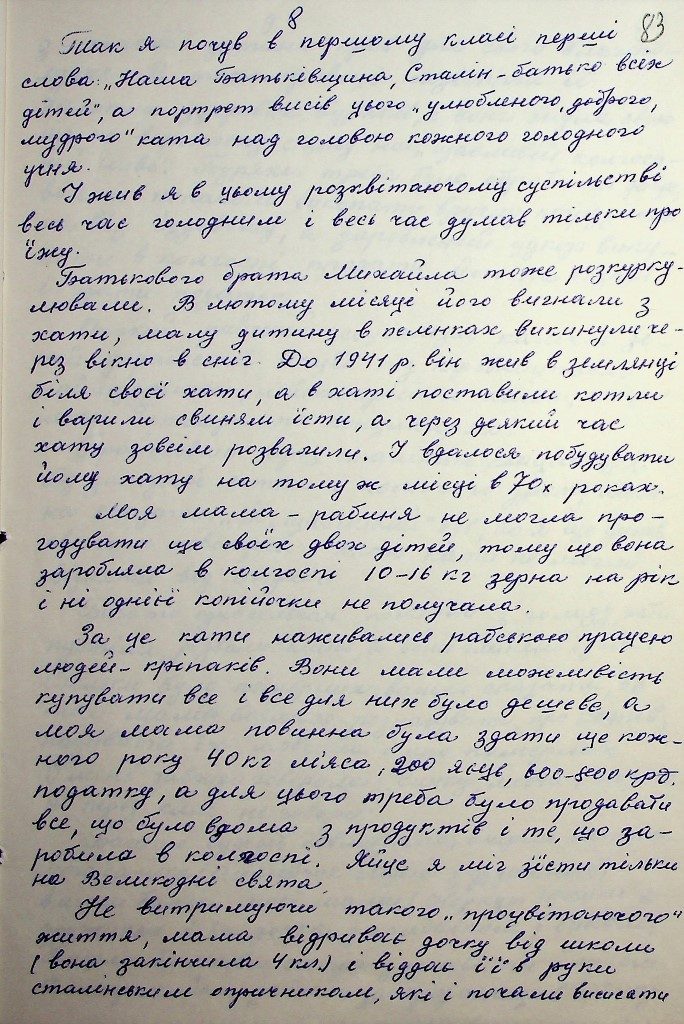 8
83
Так я почув в першому класі перші
слова: „Наша Батьківщина, Сталін - батько всіх
дітей", а портрет висів цього „улюбленого, доброго,
мудрого" ката над головою кожного голодного
учня.
І жив я в цьому розквітаючому суспільстві
весь час голодним і весь час думав тільки про
їжу.
Батькового брата Михайла тоже розкурку-
лювали. В лютому місяці його вигнали з
хати, малу дитину в пеленках викинули че-
рез вікно в сніг. До 1941 р. він жив в землянці
біля своєї хати, а в хаті поставили котли
і варили свиням їсти, а через деякий час
хату зовсім розвалили. І вдалося побудувати
йому хату на тому ж місці в 70х роках.
Моя мама - рабиня не могла про-
годувати ще своїх двох дітей, тому що вона
заробляла в колгоспі 10-16 кг зерна на рік
і ні однієї копійочки не получала.
За це кати наживались рабською працею
людей - кріпаків. Вони мали можливість
купувати все і все для них було дешеве, а
моя мама повинна була здати ще кож-
ного року 40 кг м'яса, 200 яєць, 600-800 крб.
податку, а для цього треба було продавати
все, що було вдома з продуктів і те, що за-
робила в колгоспі. Яйце я міг з'їсти тільки
на Великодні свята.
Не витримуючи такого „процвітаючого"
життя, мама відриває дочку від школи
(вона закінчила 4 кл.) і віддає її в руки
сталінським опричникам, які і почали висисати